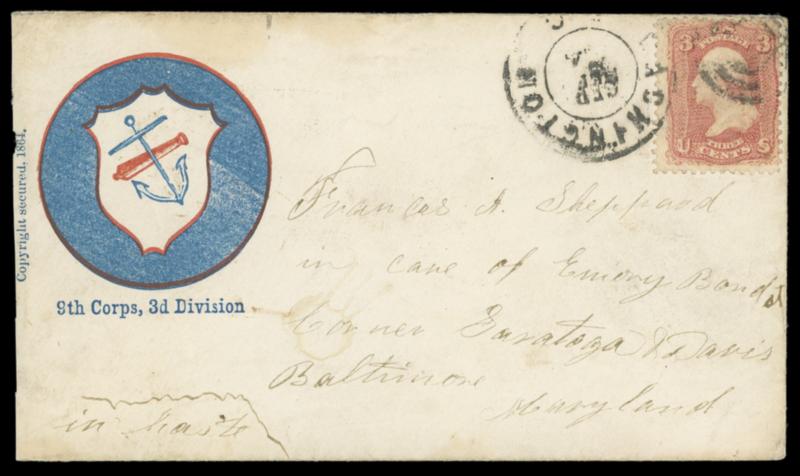 Copyright secured, 1864.
9th Corps, 3d Division
WASHINGTON
SEP
3 POSTAGE 3
U THREE S
CENTS
Frances A. Sheppard
in care of Emory Bond
Corner Saratoga & Davis
Baltimore
Maryland
in haste